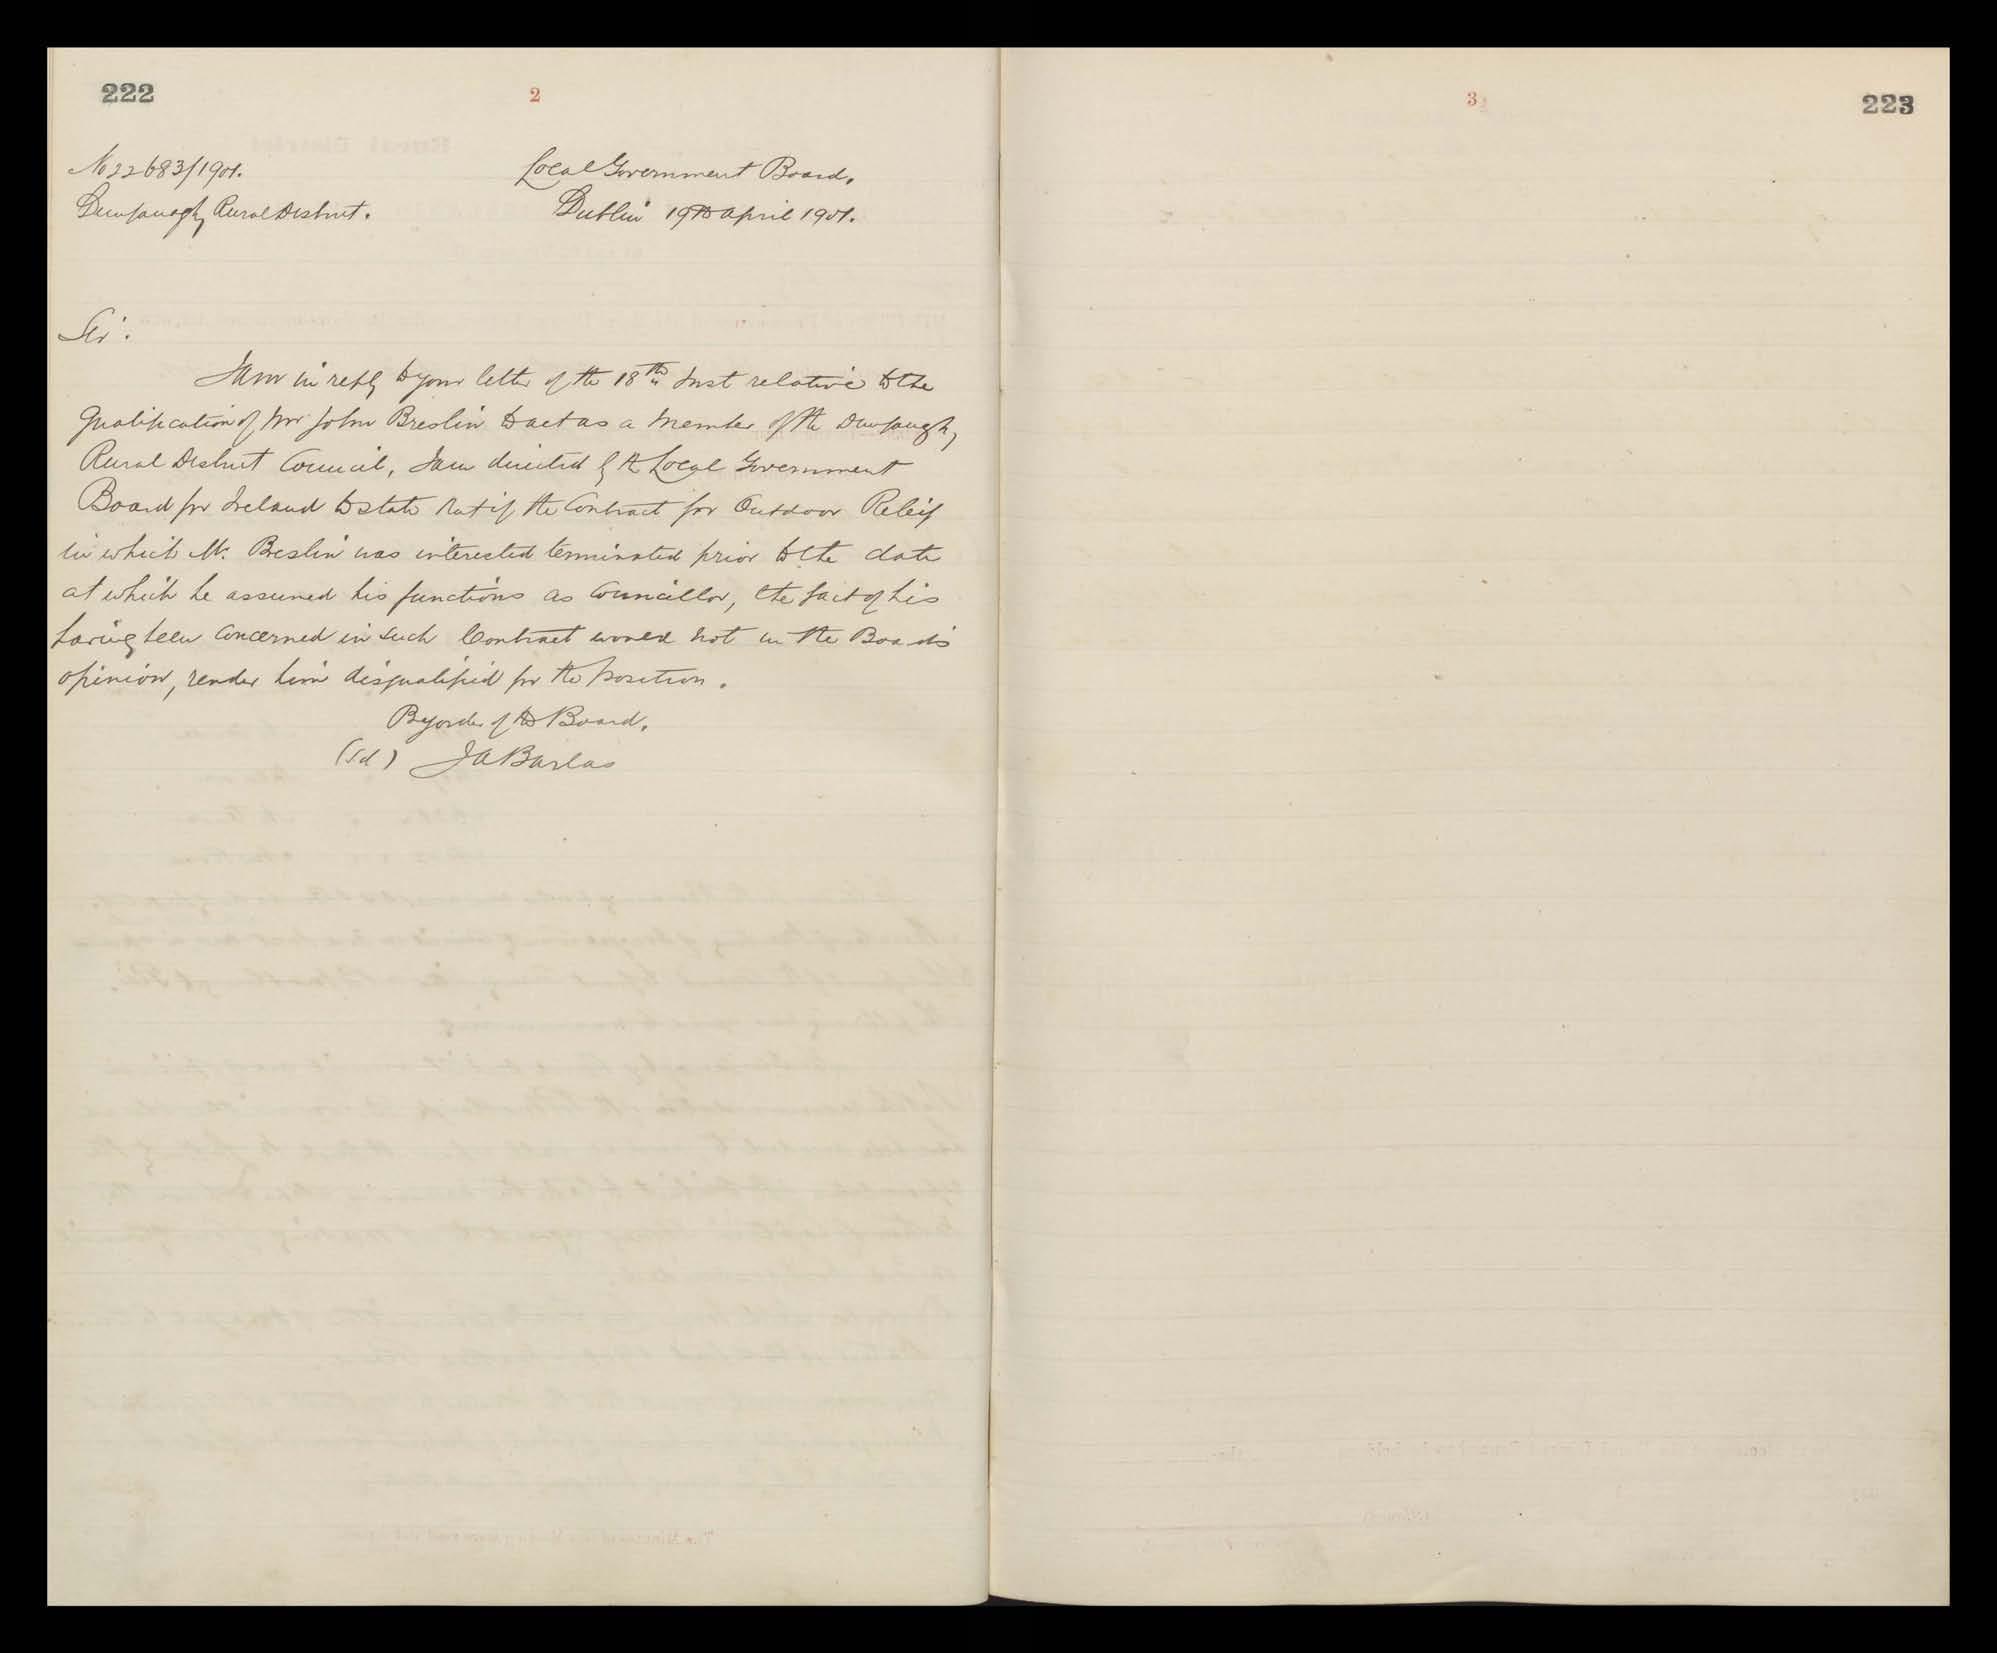 222
2
No 22683/1901.
Local Government Board,
Dunfanaghy Rural District.
Dublin 19th April 1901.
Sir.
I am in reply to your letter of the 18th Inst relative to the
qualification of Mr John Breslin to act as a Member of the Dunfanaghy
Rural District Council, I am directed by the Local Government
Board for Ireland to state that if the Contract for Outdoor Releif
in which Mr. Breslin was interested terminated prior to the date
at which he assumed his functions as Councillor, the fact of his
having been Concerned in such Contract would not in the Boards
opinion, render him disqualified for the position.
By order of the Board,
(Sd) JA Barlas
3
223